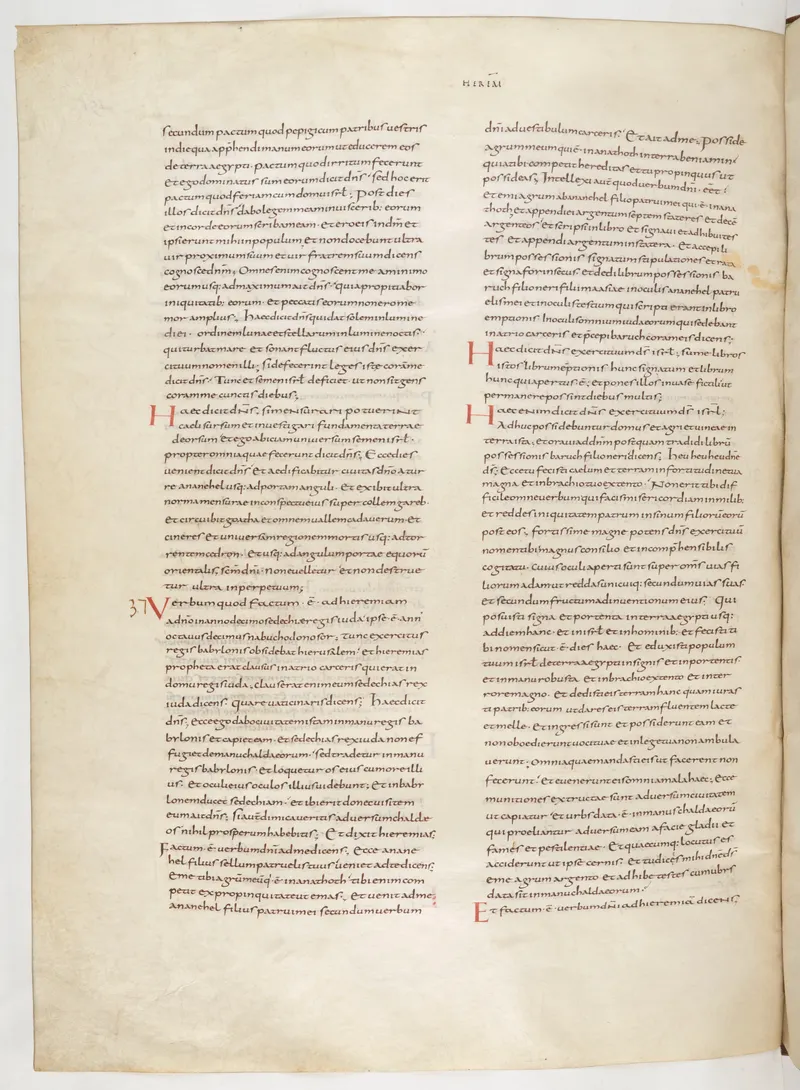 HIRIM̄
secundum pactum quod pepigi cum patribus uestris
in die qua app̄hendi manum eorum ut educerem eos
de terra aegypti· pactum quod irritum fecerunt
et ego dominatus sum eorum dicit dn̄s· sed hoc erit
pactum quod feriam cum domu isr̄l· Post dies
illos dicit dn̄s dabo legem meam in uisceribus eorum
et in corde eorum scribam eam· et ero eis in dm̄ et
ipsi erunt mihi in populum et non docebunt ultra
uir proximum suum et uir fratrem suum dicens
cognosce dn̄m; Omnes enim cognoscent me a minimo
eorum usq; ad maximum ait dn̄s· quia propitiabor
iniquitatib; eorum· et peccati eorum non ero me
mor amplius; Haec dicit dn̄s qui dat solem in lumine
diei· ordinem lunae et stellarum in lumine noctis·
qui turbat mare et sonant fluctus eius dn̄s exer
cituum nomen illi; si defecerint leges istae coram me
dicit dn̄s· Tunc et semen isr̄l deficiet ut non sit gens
coram me cunctis diebus;
Haec dicit dn̄s; si mensurari potuerint
caeli sursum et inuestigari fundamenta terrae
deorsum et ego abiciam uniuersum semen isr̄l·
propter omnia quae fecerunt dicit dn̄s; Ecce dies
uenient dicit dn̄s et aedificabitur ciuitas dn̄o a tur
re ananehel usq; ad portam anguli· et exibit ultra
norma mensurae in conspectu eius super collem gareb·
et circuibit goatha et omnem uallem cadauerum· et
cineres et uniuersam regionem mortis usq; ad tor
rentem cedron· et usq; ad angulum portae equorū
orientalis; sc̄m dn̄i· non euelletur et non destrue
tur ultra in perpetuum;
37 Verbum quod factum· ē· ad hieremiam
a dn̄o in anno decimo sedechiae regis iuda ipse· ē· ann
octauus decimus nabuchodonosor; tunc exercitus
regis babylonis obsidebat hierusalem· et hieremias
propheta erat clausus in atrio carceris qui erat in
domu regis iuda; clauserat enim eum sedechias rex
iuda dicens· quare uaticinaris dicens; Haec dicit
dn̄s; ecce ego dabo ciuitatem istam in manu regis ba
bylonis et capiet eam· et sedechias rex iuda non ef
fugiet de manu chaldaeorum· sed tradetur in manu
regis babylonis· et loquetur os eius cum ore illi
us· et oculi eius oculos illius uidebunt; et in baby
lonem ducet sedechiam· et ibi erit donec uisitem
eum ait dn̄s; si autē dimicaueritis aduersum chalde
os nihil prosperum habebitis; Et dixit hieremias;
Factum· ē· uerbum dn̄i ad me dicens; ecce anane
hel filius sellum patruelis tuus ueniet ad te dicens;
Eme tibi agrū meū q̄· ē· in anathoth· tibi enim com
petit ex propinquitate ut emas; et uenit ad me;
Ananehel filius patrui mei secundum uerbum
dn̄i ad uestibulum carceris; Et ait ad me; posside
agrum meum qui· ē· in anathoth in terra beniamin;
quia tibi competit hereditas et tu propinquus ut
possideas; Intellexi autē quod uerbum dn̄i· eēt·
et emi agrum ab ananehel filio patrui mei qui· ē· in ana
thoth; et appendi ei argentum septem stateres et decē
argenteos et scripsi in libro et signaui et adhibui tes
tes· et appendi argentum in statera· et accepi li
brum possessionis signatum stipulationes et rata
et signa forinsecus· et dedi librum possessionis ba
ruch filio neri filii maasiae in oculis ananehel patru
elis mei et in oculis testium qui scripti erant in libro
emptionis· In oculis omnium iudaeorum qui sedebant
in atrio carceris et p̄cepi baruch coram eis dicens;
Haec dicit dn̄s exercituum d̄s isr̄l; sume libros
istos librum ēptionis hunc signatum et librum
hunc qui apertus· ē; et pone illos in uase fictili ut
permanere possint diebus multis;
Haec enim dicit dn̄s exercituum d̄s isr̄l;
Adhuc possidebuntur domus et agri et uineae in
terra ista; et oraui ad dn̄m postquam tradidi librū
possessionis baruch filio neri dicens; heu heu heu dn̄e
d̄s; ecce tu fecisti caelum et terram in fortitudine tua
magna et in brachio tuo extento· Non erit tibi dif
ficile omne uerbum qui facis misericordiam in milib;
et reddes iniquitatem patrum in sinum filiorū eorū
post eos; fortissime magne potens dn̄s exercituū
nomen tibi magnus consilio et incomp̄hensibilis
cogitatu· cuius oculi aperti sunt super om̄s uias fi
liorum adam ut reddas unicuiq; secundum uias suas
et secundum fructum adinuentionum eius; Qui
posuisti signa et portenta in terra aegypti usq;
ad diem hanc· et in isr̄l· et in hominib; et fecisti ti
bi nomen sicut· ē· dies haec· et eduxisti populum
tuum isr̄l· de terra aegypti in signis et in portentis
et in manu robusta· et in brachio extento et in ter
rore magno· et dedisti eis terram hanc quam iuras
ti patrib; eorum ut dares eis terram fluentem lacte
et melle· et ingressi sunt et possiderunt eam et
non oboedierunt uoci tuae et in lege tua non ambula
uerunt· Omnia quae mandasti eis ut facerent non
fecerunt· et euenerunt eis omnia mala haec; ecce
munitiones extructae sunt aduersum ciuitatem
ut capiatur· et urbs data· ē· in manus chaldaeorū
qui proeliantur aduersum eam a facie gladii et
famis et pestilentiae· Et quaecumq; locutus es
acciderunt ut ipse cernis· et tu dicis mihi dn̄e d̄s
eme agrum argento et adhibe testes cum urbs
data sit in manu chaldaeorum·
Et factum· ē· uerbum dn̄i ad hieremiā dicens;